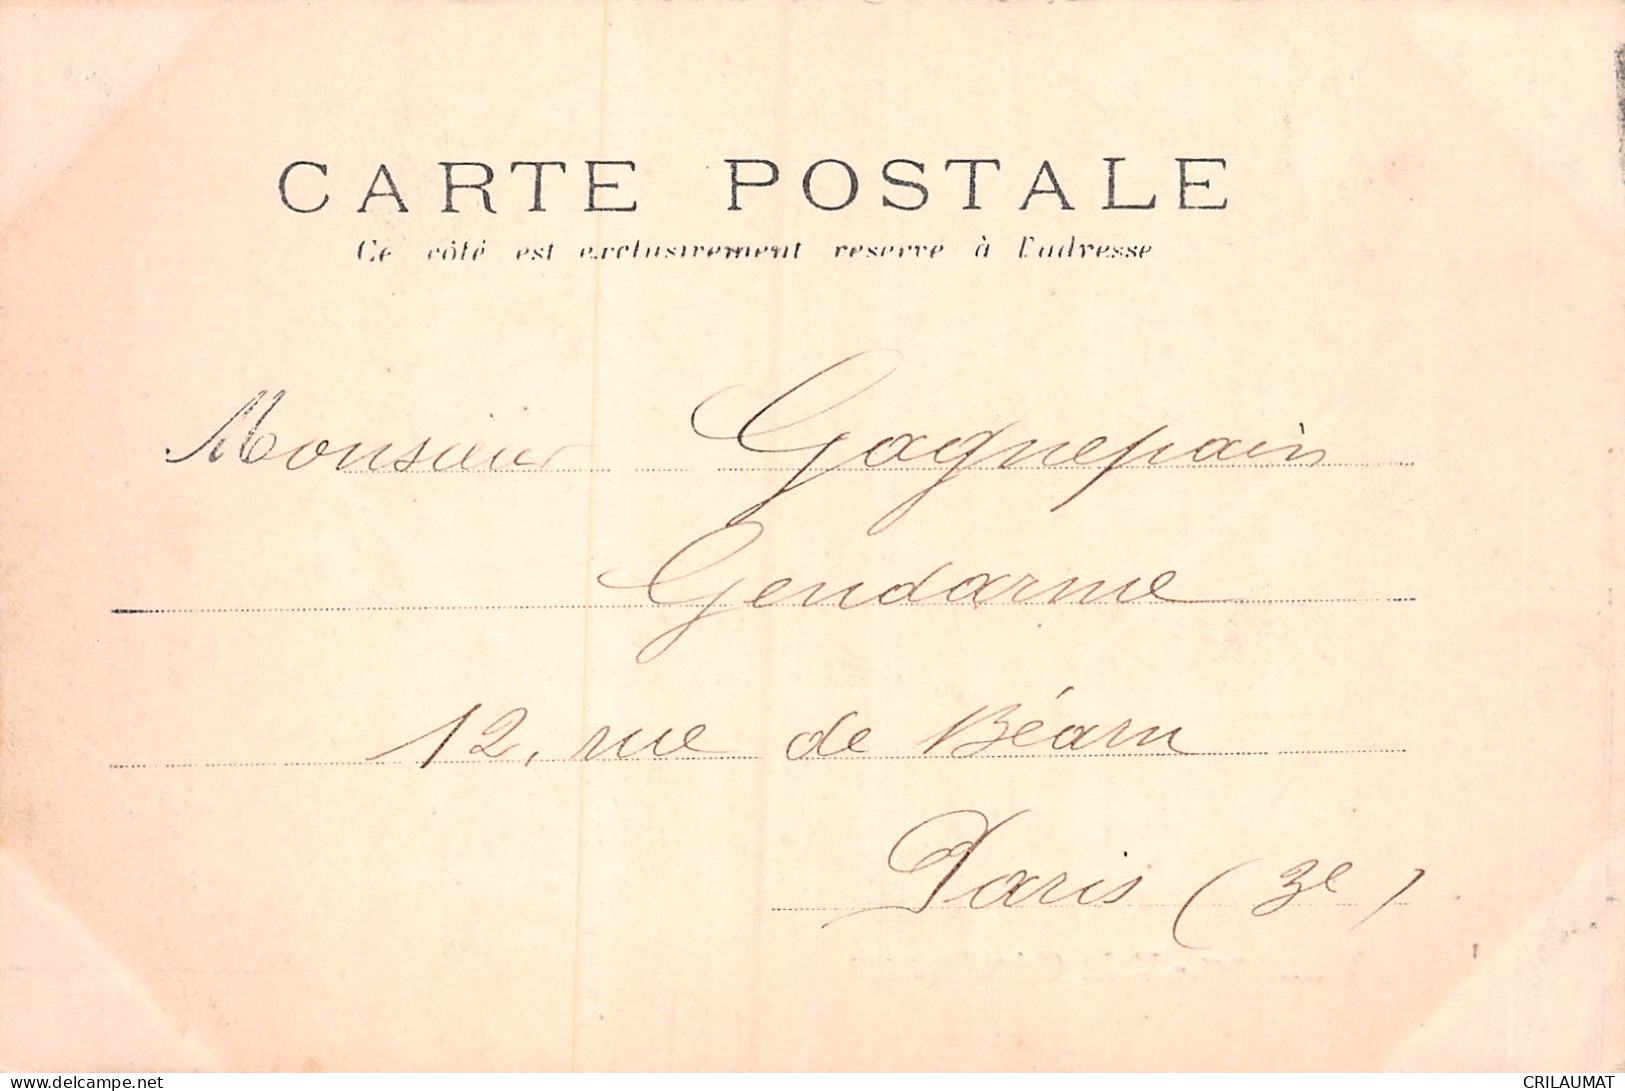 CARTE POSTALE
Ce côté est exclusivement reserve à l'adresse
Monsieur Gagnepain
Gendarme
12, rue de Béarn
Paris (3e)
www.delcampe.net
CRILAUMAT